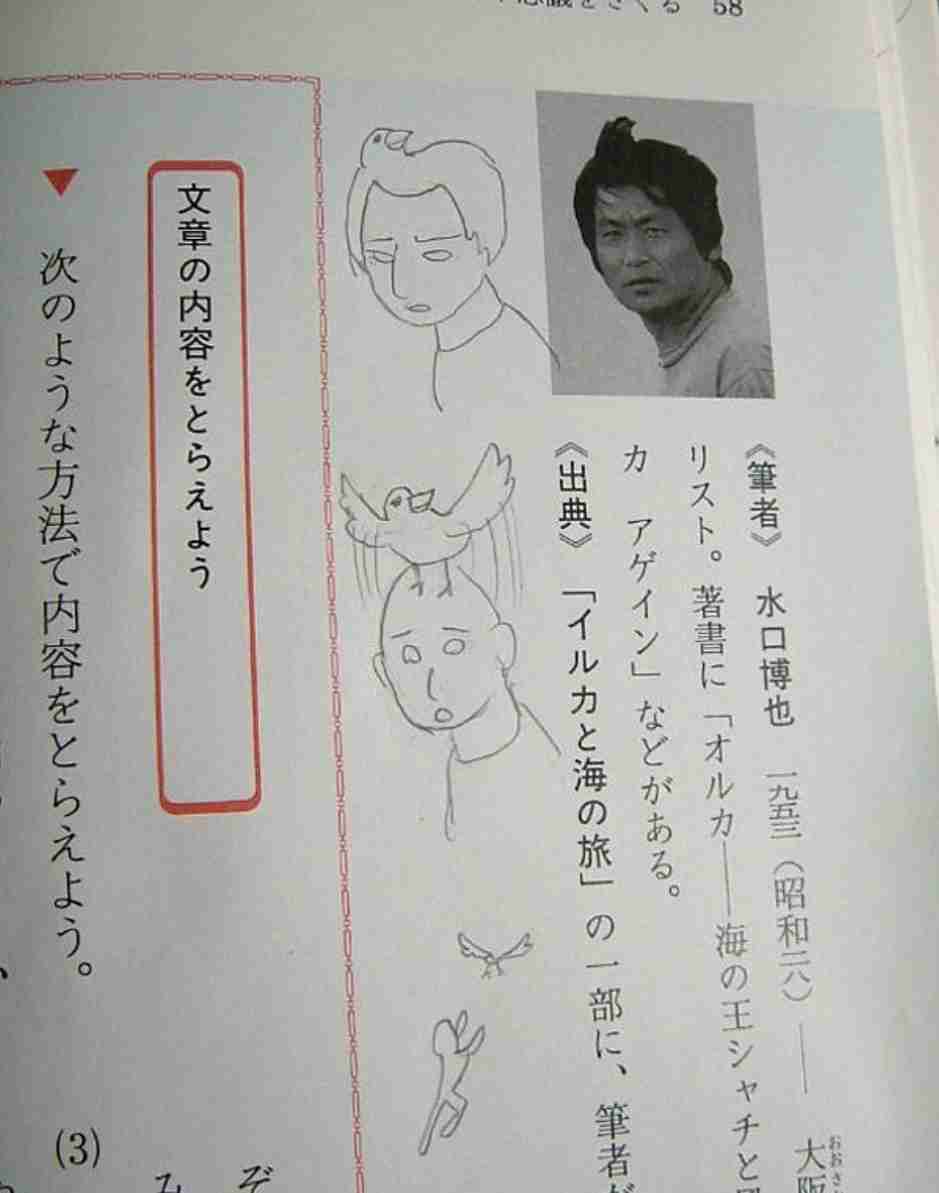 思議をさぐる 58
《筆者》 水口博也 一九五三（昭和二八）—— 大阪
リスト。著書に「オルカ——海の王シャチと
カ アゲイン」などがある。
《出典》 「イルカと海の旅」の一部に、筆者が
文章の内容をとらえよう
▼ 次のような方法で内容をとらえよう。
(3)
ぞ
み